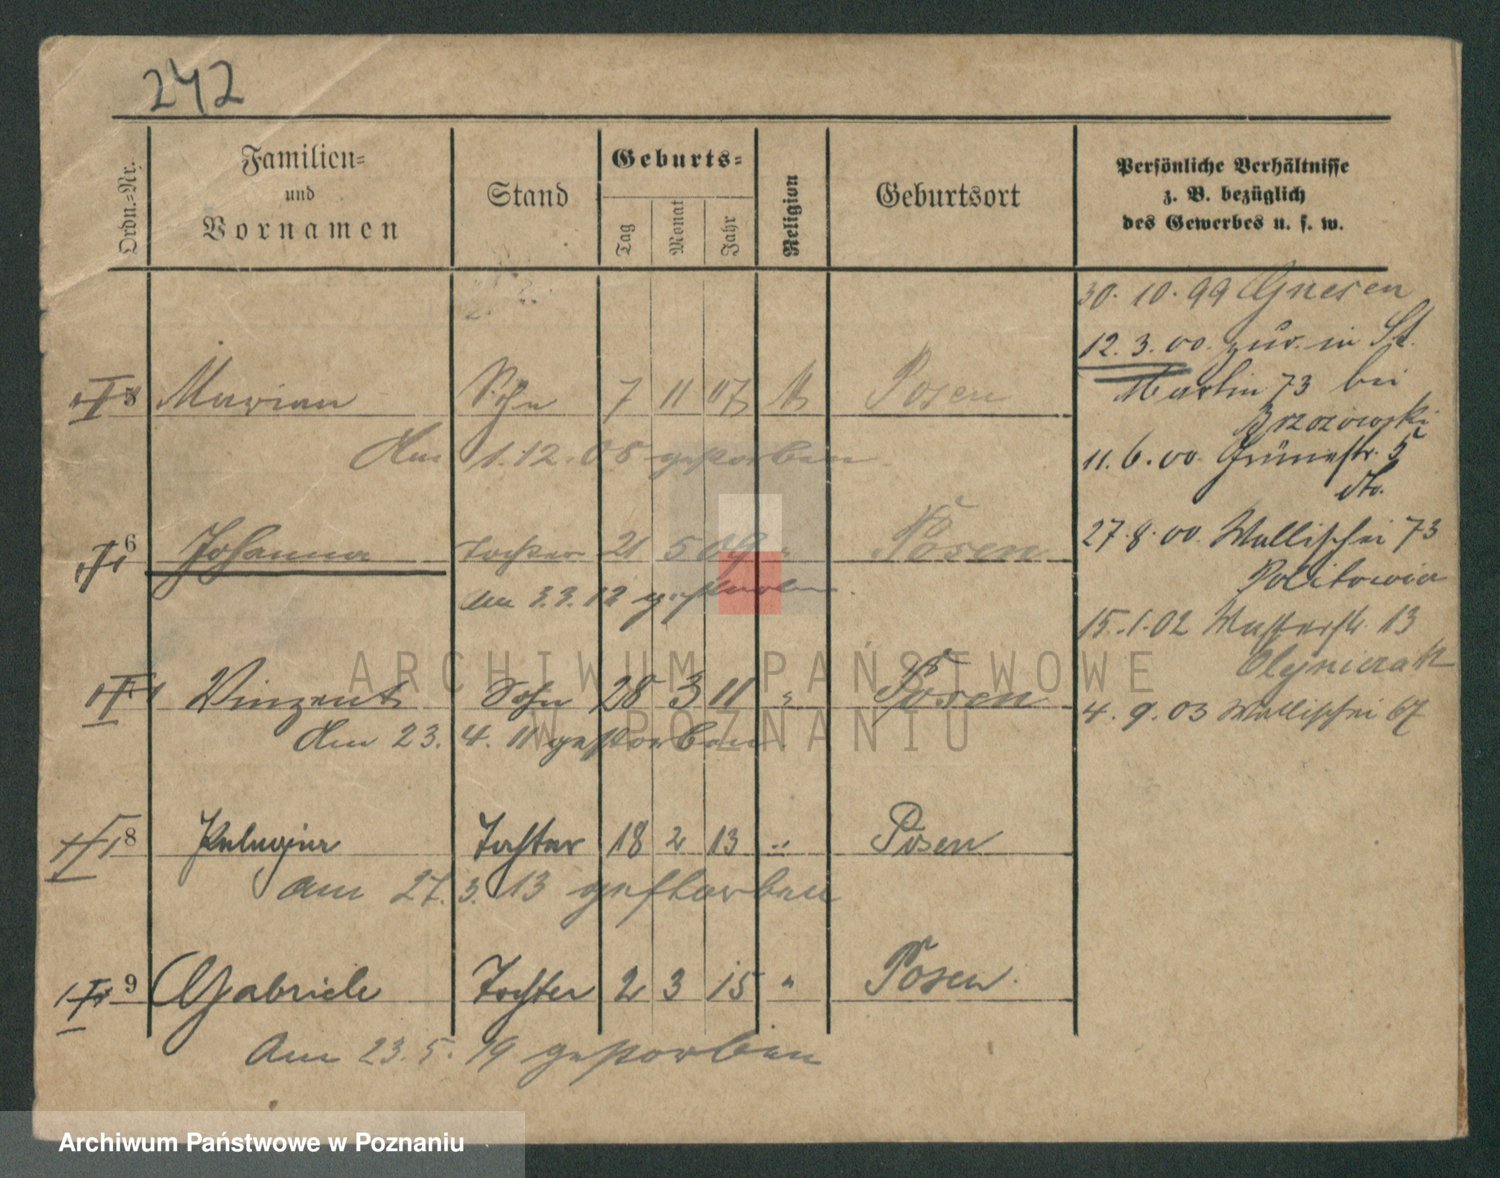 242
Ordn.-Nr. Familien- und Vornamen Stand Geburts- Tag Monat Jahr Religion Geburtsort Persönliche Verhältnisse z. B. bezüglich des Gewerbes u. s. w.
30. 10. 99 Gnesen
12. 3. 00. zur. in St.
Martin 73 bei
Brzozowski
Marian Sohn 7 11 07 Posen
Am 1. 12. 08 gestorben.
11. 6. 00. Grünestr. 5
dto.
6 Johanna Tochter 21 5 09 " Posen
am 3. 3. 12 gestorben.
27. 8. 00. Wallischei 73
15. 1. 02 13
Olejniczak
Vinzent Sohn 28 3 11 " Posen
Am 23. 4. 11 gestorben.
4. 9. 03 Wallischei 67
8 Tochter 18 2 13 " Posen
am 27. 3. 13 gestorben
9 Gabriele Tochter 2 3 15 " Posen.
Am 23. 5. 19 gestorben
ARCHIWUM PAŃSTWOWE
W POZNANIU
Archiwum Państwowe w Poznaniu